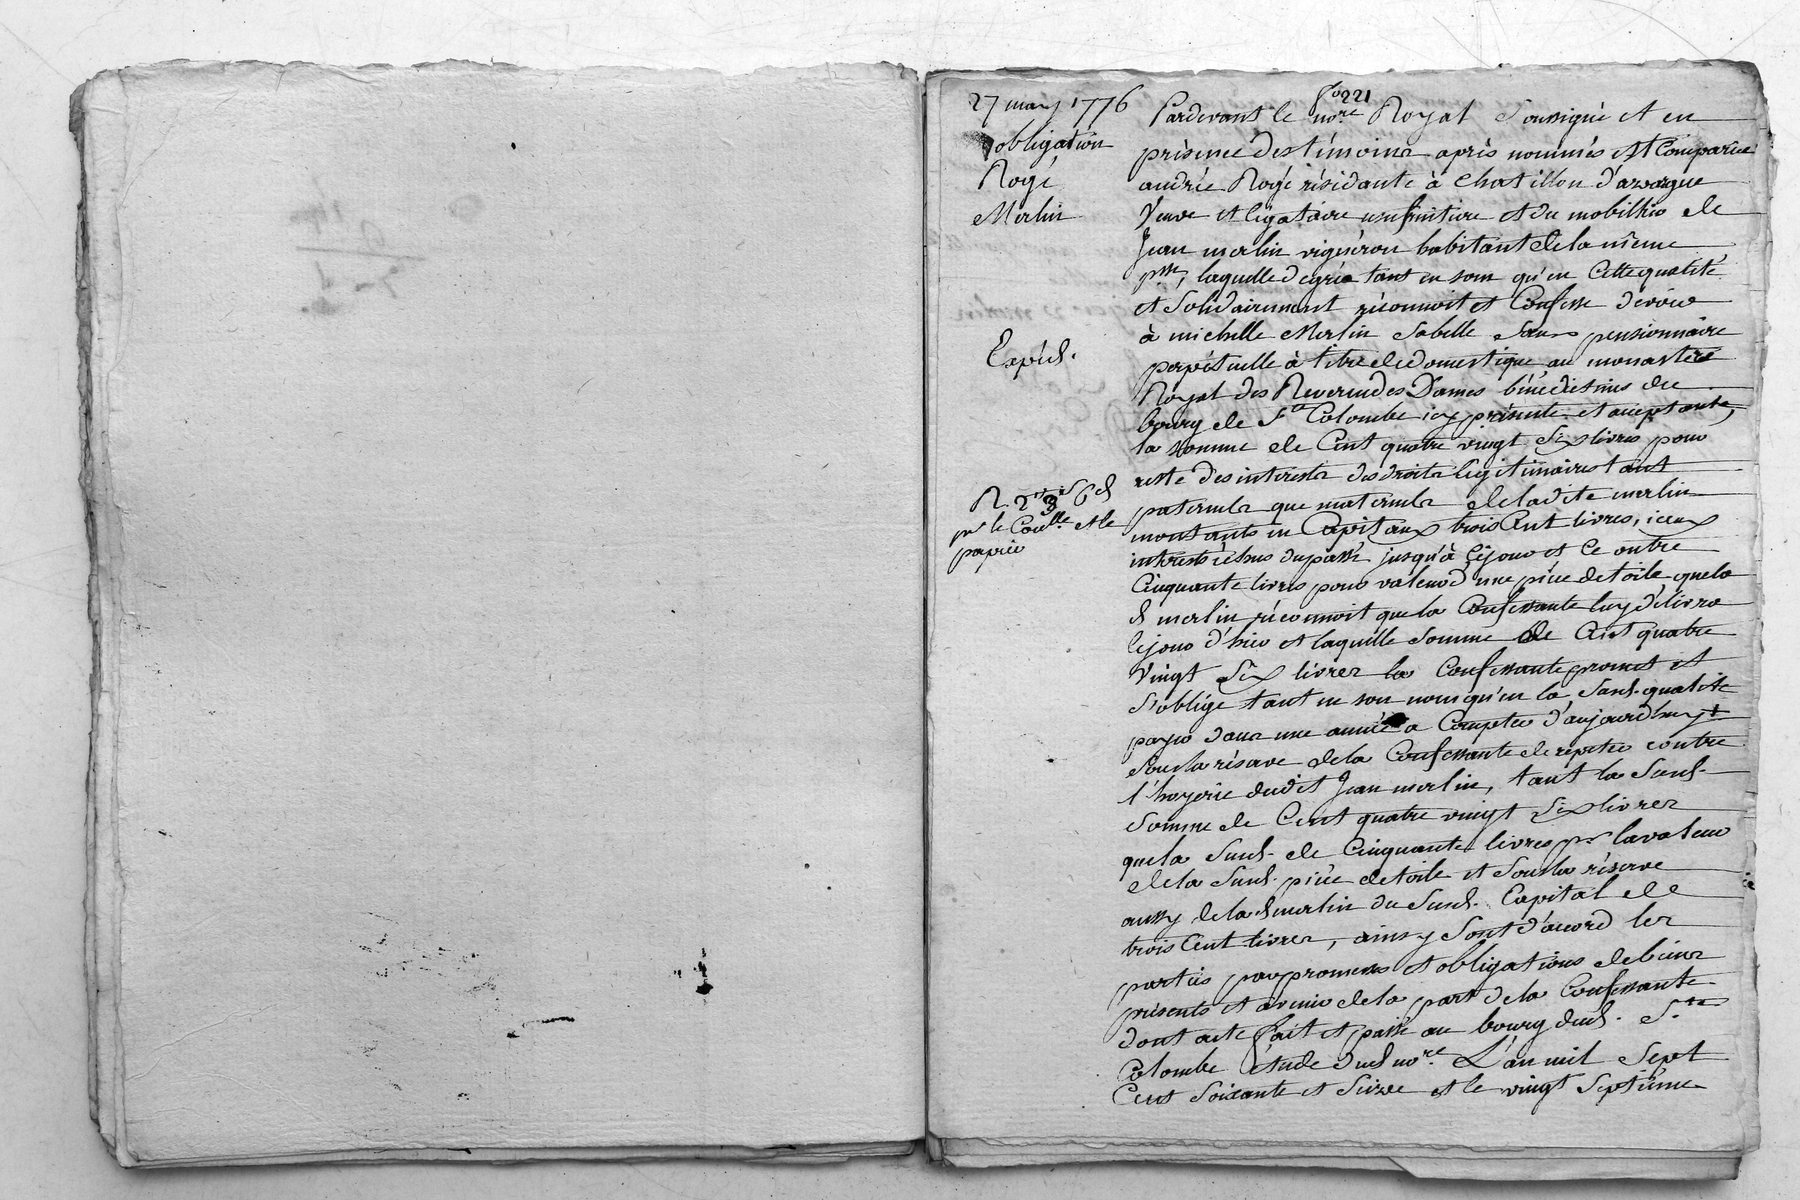 fo 221
27 may 1776
obligation
Rogé
Merlin
Expéd.
R. 2
pr le Coulle et le
papier
Pardevant le nore Royal Soussigné et en
présence des témoins après nommés est Comparüe
andrée Rogé résidante à Chatillon d'azergue
Veuve et légataire usufruitière et du mobillier de
Jean merlin vigneron habitant de la même
psse, laquelle de gré tant en son qu'en Cette qualité
et Solidairement réconnoit et Confesse dévoir
à michelle Merlin Sabelle Soeur pensionnaire
perpétuelle à titre de domestique au monastère
Royal des Reverendes Dames bénédictines du
bourg de Ste Colombe icy présente et acceptante,
la somme de Cent quatre vingt Six livres pour
reste des interests des droits légitimaires tant
paternels que maternels de ladite merlin
montants en Capitaux trois Cent livres, iceux
interests échus du passé jusqu'à cejour et ce outre
Cinquante livres pour valeur d'une pièce de toile que la
d merlin réconnoit que la Confessante luy délivra
lejour d'hier et laquelle Somme de Cent quatre
Vingt Six livres la Confessante promet et
s'oblige tant en son nom qu'en la Susd. qualité
payer dans une année a Compter d'aujourd'huy
Sous la réserve de la Confessante de répéter contre
l'hoyerie dudit Jean merlin, tant la Susd.
Somme de Cent quatre vingt Six livres
que la Susd. de Cinquante livres pr la valeur
de la Susd. pièce de toile et Sous la réserve
aussy de la d merlin du Susd. Capital de
trois Cent livres, ainsy Sont d'accord les
parties par promesses et obligations de biens
présents et avenir de la part de la Confessante
dont acte fait et passé au bourg dud. Ste
Colombe étude dud nore. L'an mil Sept
Cent Soixante et Seize et le vingt Septième